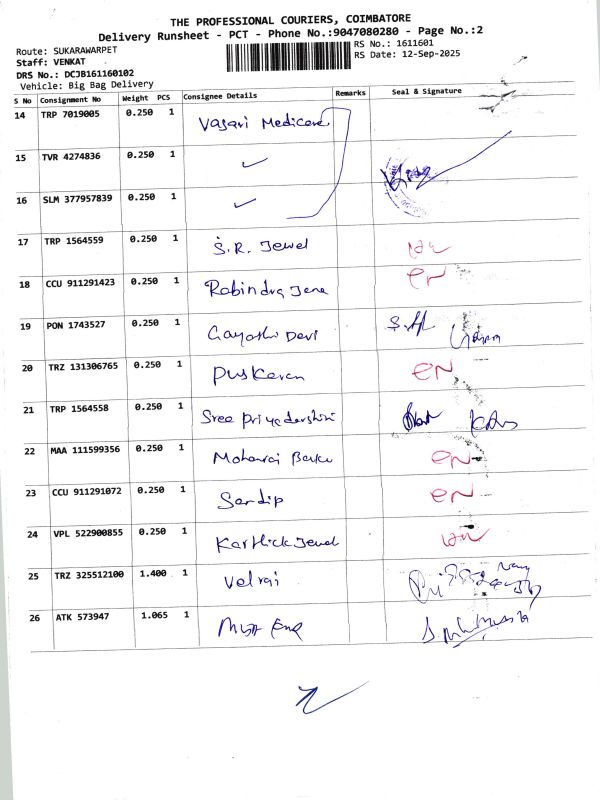 THE PROFESSIONAL COURIERS, COIMBATORE
Delivery Runsheet - PCT - Phone No.:9047080280 - Page No.:2
Route: SUKARAWARPET
RS No.: 1611601
Staff: VENKAT
RS Date: 12-Sep-2025
DRS No.: DCJB161160102
Vehicle: Big Bag Delivery
S No Consignment No Weight PCS Consignee Details Remarks Seal & Signature
14 TRP 7019005 0.250 1 Vasavi Medicare
15 TVR 4274836 0.250 1 ✓
16 SLM 377957839 0.250 1 ✓
17 TRP 1564559 0.250 1 S.R. Jewel
18 CCU 911291423 0.250 1 Rabindra Jena EN
19 PON 1743527 0.250 1 Gayathi Devi
20 TRZ 131306765 0.250 1 Puskaran EN
21 TRP 1564558 0.250 1 Sree Priyadarshini
22 MAA 111599356 0.250 1 Moharaj EN
23 CCU 911291072 0.250 1 Sardip EN
24 VPL 522900855 0.250 1 Karthick Jewel
25 TRZ 325512100 1.400 1 Velraj
26 ATK 573947 1.065 1